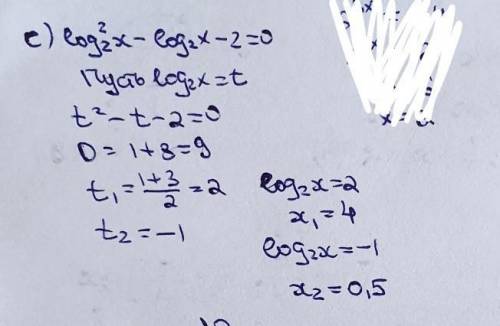 е) log₂²x - log₂x - 2 = 0
Пусть log₂x = t
t² - t - 2 = 0
D = 1 + 8 = 9
t₁ = (1+3)/2 = 2
t₂ = -1
log₂x = 2
x₁ = 4
log₂x = -1
x₂ = 0,5